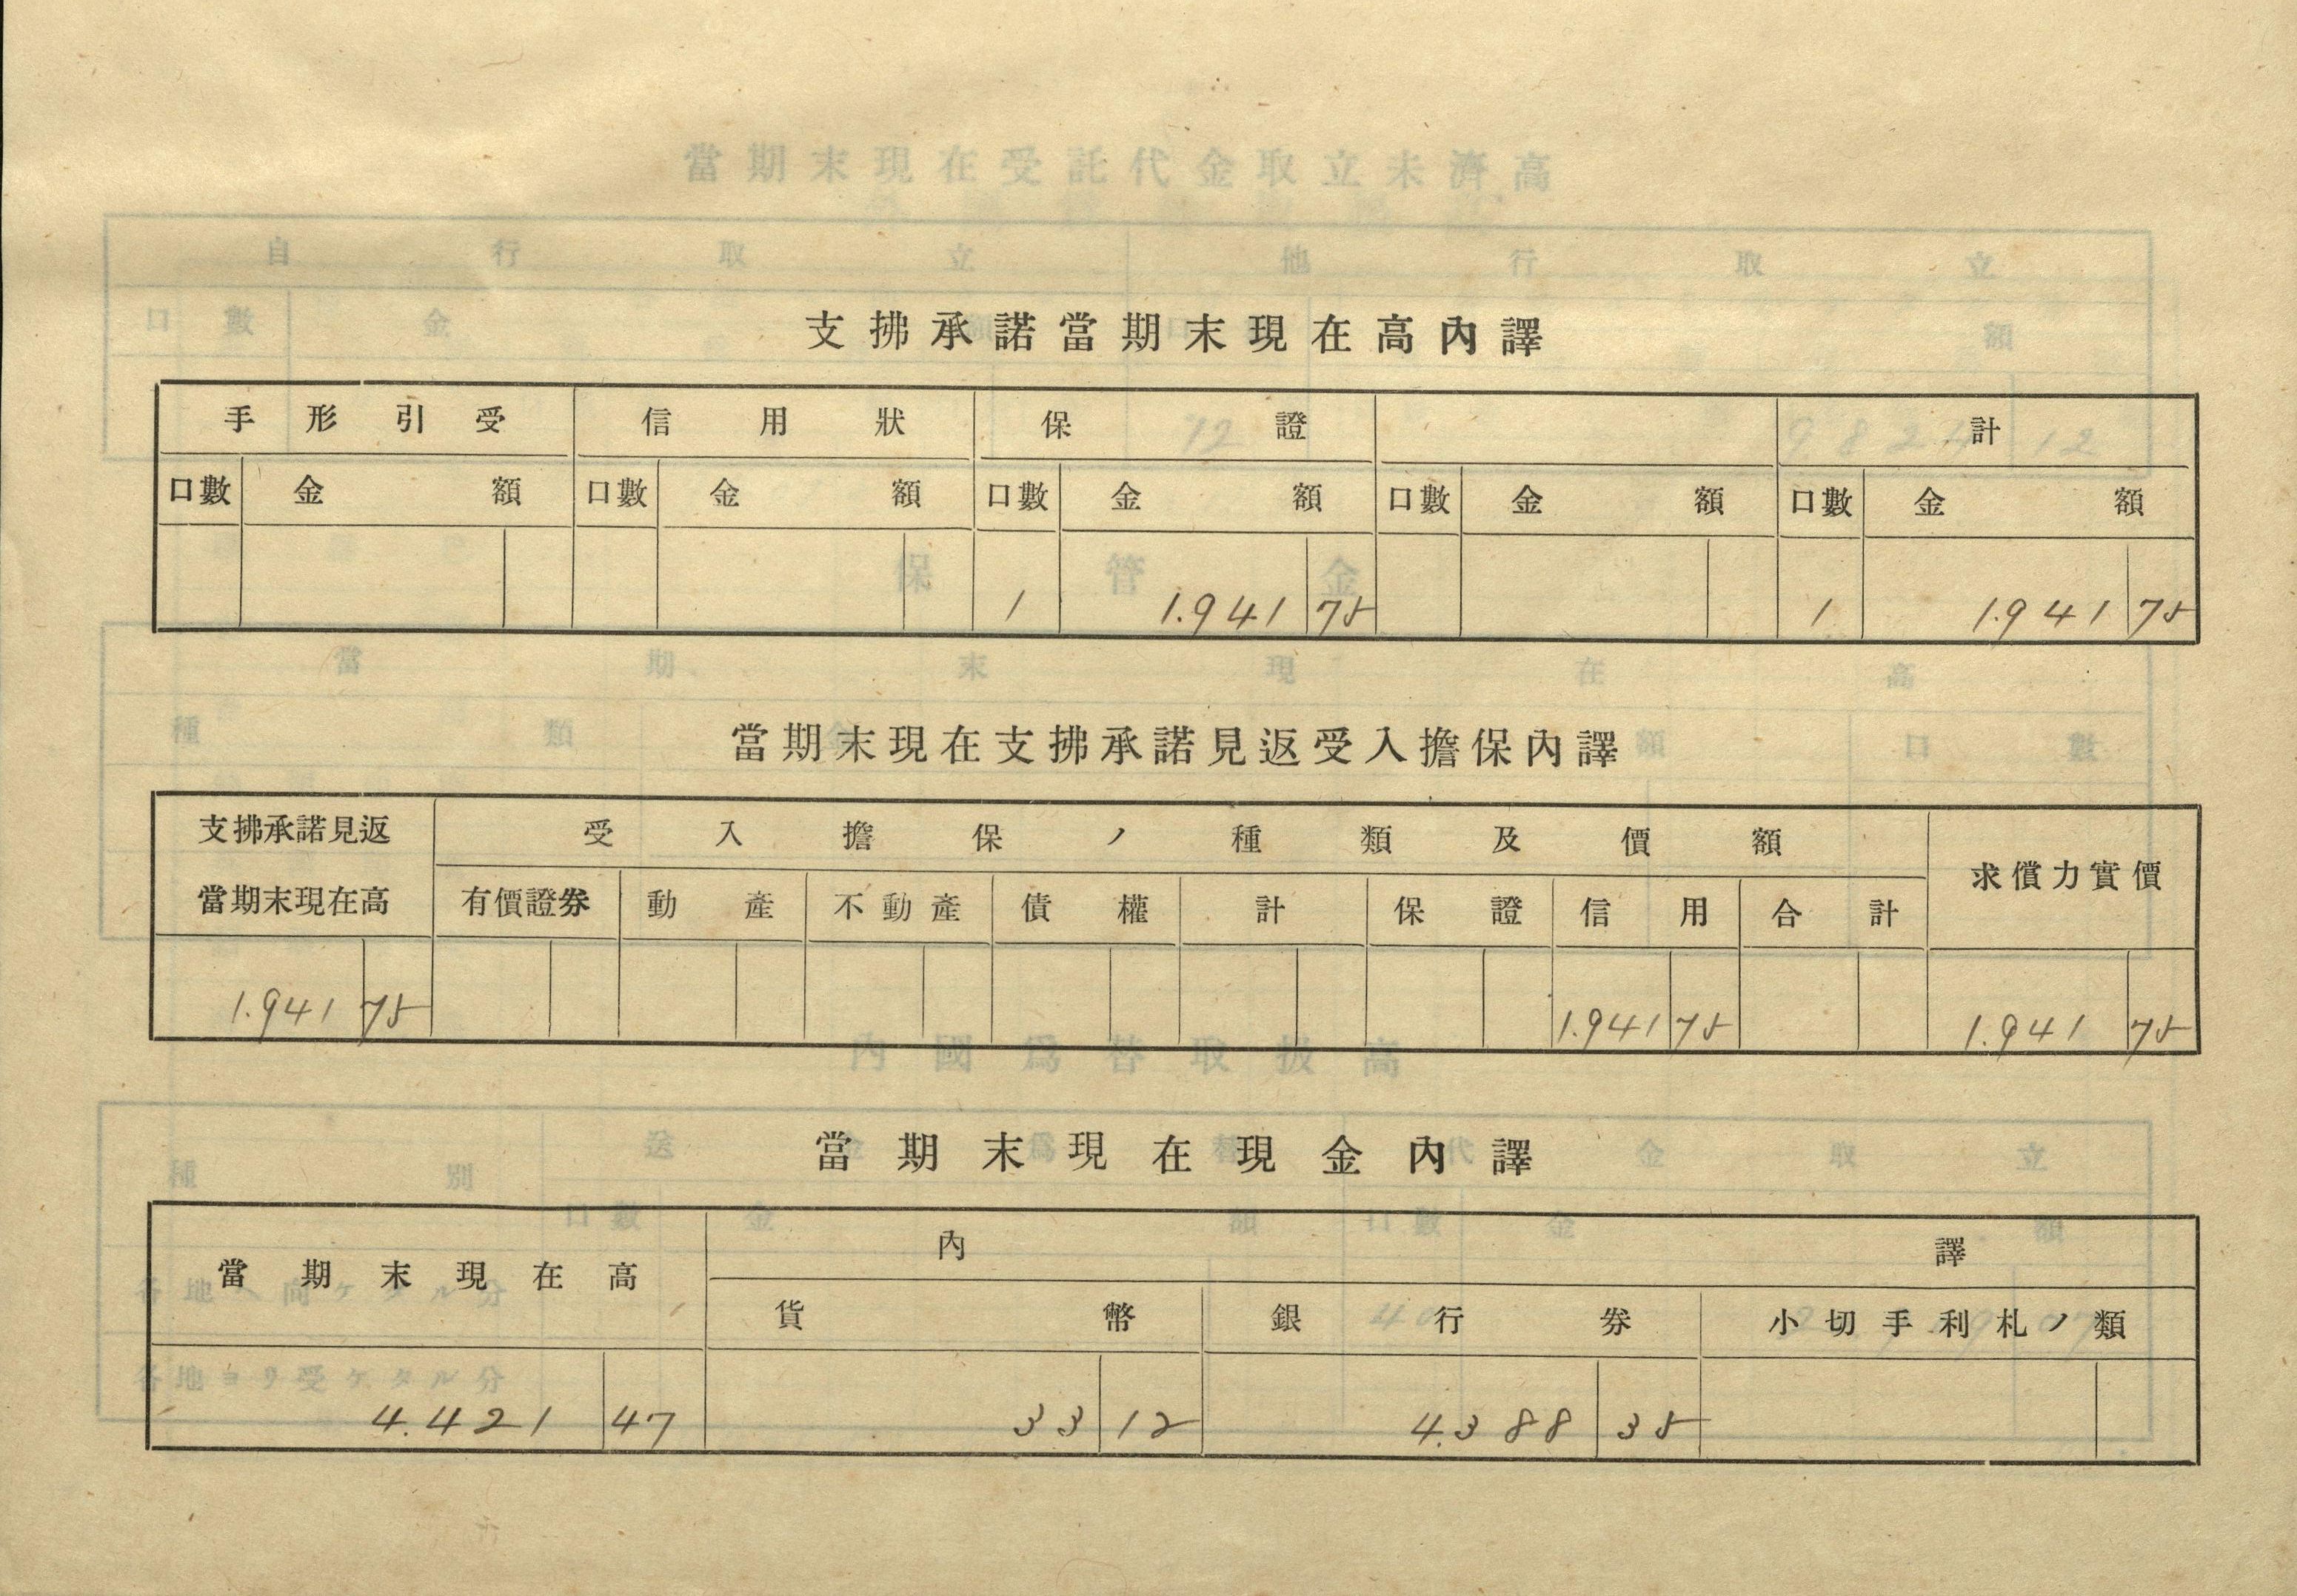 支拂承諾當期末現在高內譯
手形引受 信用狀 保證 計
口數 金額 口數 金額 口數 金額 口數 金額 口數 金額
1 1.941 75 1 1.941 75
當期末現在支拂承諾見返受入擔保內譯
支拂承諾見返 受入擔保ノ種類及價額 求償力實價
當期末現在高 有價證券 動產 不動產 債權 計 保證 信用 合計
1.941 75 1.941 75 1.941 75
當期末現在現金內譯
當期末現在高 內譯
貨幣 銀行券 小切手利札ノ類
4.421 47 33 12 4.388 35